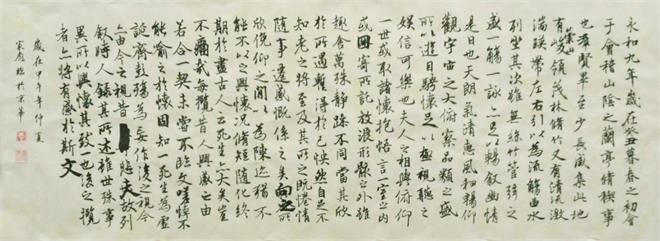 永和九年歲在癸丑暮春之初會
于會稽山陰之蘭亭脩稧事
也羣賢畢至少長咸集此地
有崇山峻領茂林脩竹又有清流激
湍暎帶左右引以為流觴曲水
列坐其次雖無絲竹管弦之
盛一觴一詠亦足以暢叙幽情
是日也天朗氣清惠風和暢仰
觀宇宙之大俯察品類之盛
所以遊目騁懷足以極視聽之
娛信可樂也夫人之相與俯仰
一世或取諸懷抱悟言一室之內
或因寄所託放浪形骸之外雖
趣舍萬殊靜躁不同當其欣
於所遇蹔得於己怏然自足不
知老之將至及其所之既惓情
隨事遷感慨係之矣向之所
欣俛仰之閒以為陳迹猶不
能不以之興懷況脩短隨化終
期於盡古人云死生亦大矣豈
不痛哉每攬昔人興感之由
若合一契未嘗不臨文嗟悼不
能喻之於懷固知一死生為虛
誕齊彭殤為妄作後之視今
亦由今之視昔悲夫故列
叙時人錄其所述雖世殊事
異所以興懷其致一也後之攬
者亦將有感於斯文
歲在甲午年仲夏
臨於京華